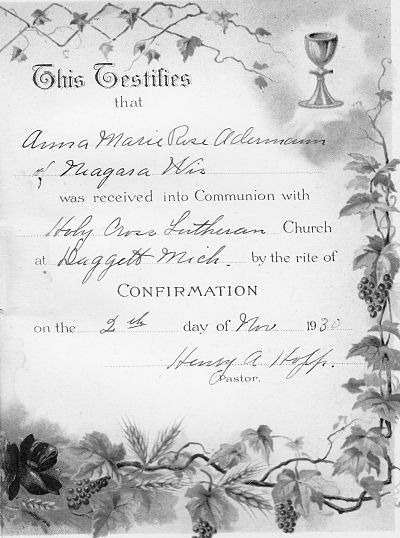 This Testifies
that
Anna Marie Rose Adermann
of Niagara Wis
was received into Communion with
Holy Cross Lutheran Church
at Daggett Mich. by the rite of
CONFIRMATION
on the 2th day of Nov 1930
Henry A Hopp.
Pastor.